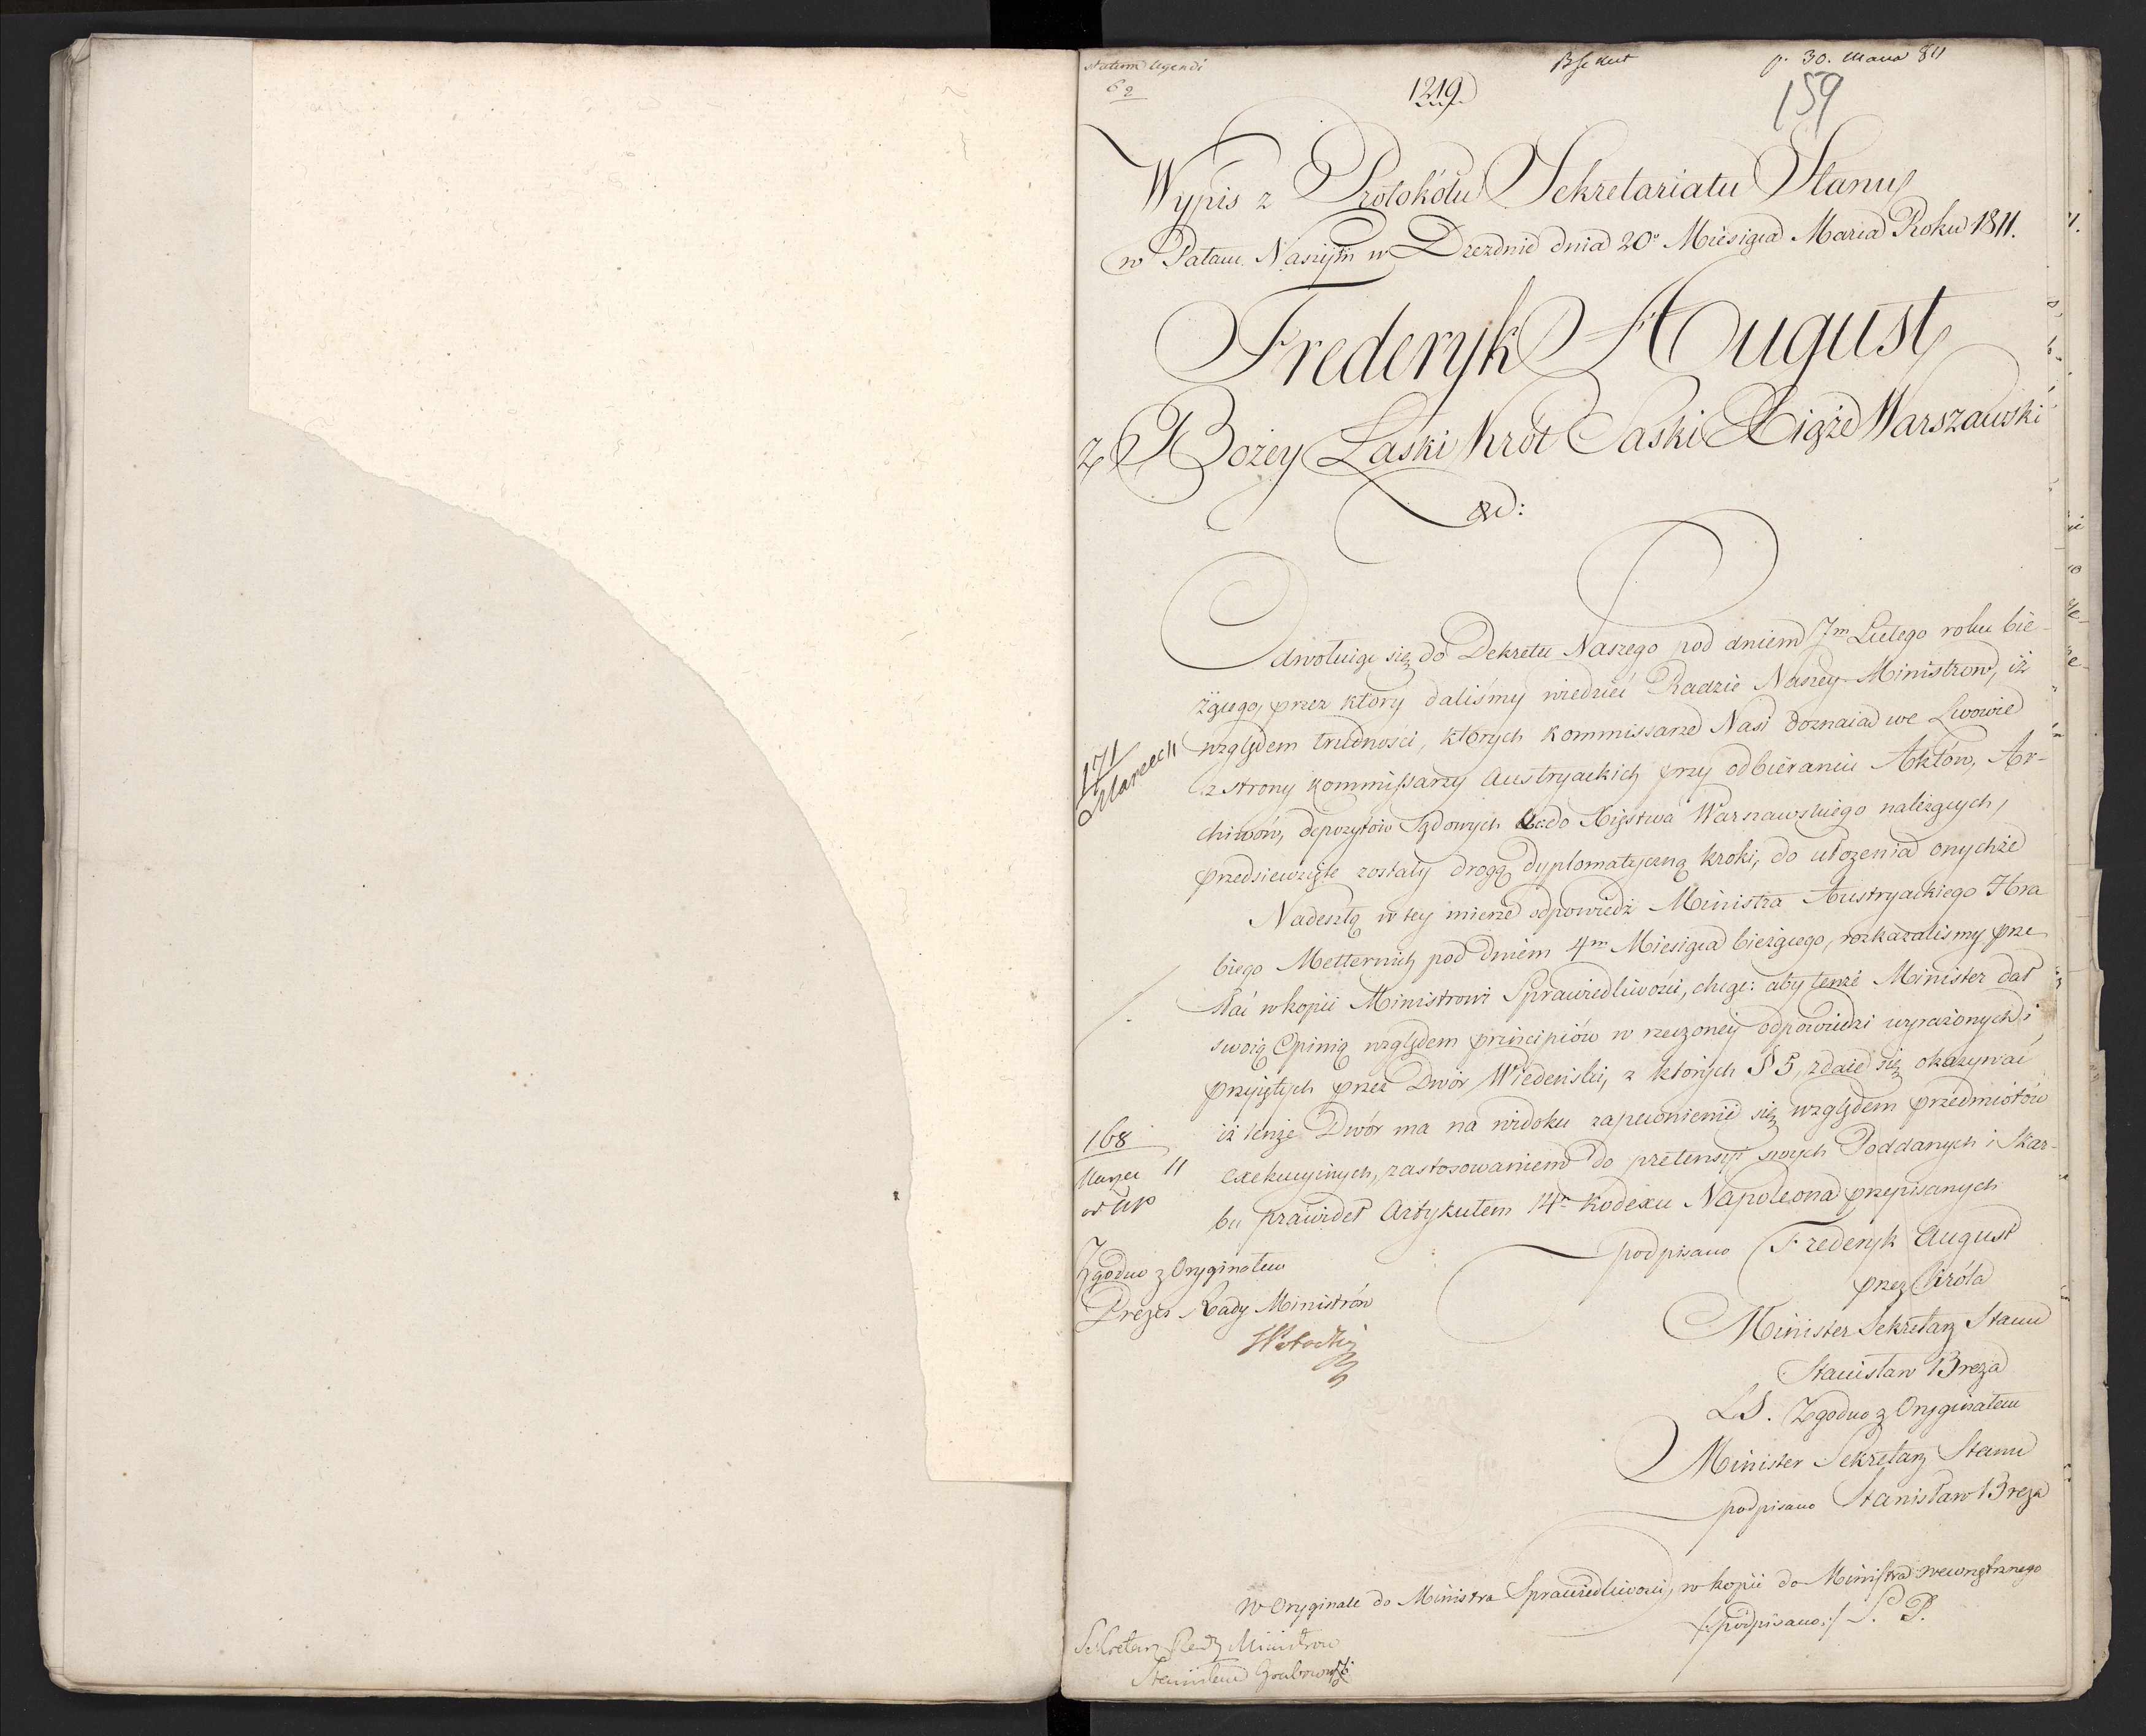 1219
p. 30. Marca 811
159
Wypis z Protokółu Sekretariatu Stanu
w Pałacu Naszym w Dreznie dnia 20º Miesiąca Marca Roku 1811.
Frederyk August
z Bożey Łaski Król Saski Xiąże Warszawski
&c:
Odwołuiąc się do Dekretu Naszego pod dniem 7m Lutego roku bie-
żącego, przez który daliśmy wiedzieć Radzie Naszey Ministrow, iż
względem trudności, których Kommissarze Nasi doznaią we Lwowie
z strony Kommissarzy Austryackich przy odbieraniu Aktów, Ar-
chiwów, depozytów Sądowych &c: do Xięstwa Warszawskiego należących,
przedsiewzięte zostały drogą dyplomatyczną kroki, do ułożenia onychże
Nadeszłą w tey mierze odpowiedź Ministra Austryackiego Hra
biego Metternich pod dniem 4m Miesiąca bieżącego, rozkazaliśmy prze
słać w kopii Ministrowi Sprawiedliwości, chcąc: aby tenże Minister dał
swoią Opinią względem principiów w rzeczoney odpowiedzi wyrażonych i
przyiętych przez Dwór Wiedeński, z których § 5, zdaie się okazywać
iż tenże Dwór ma na widoku zapewnienie się względem przedmiotów
exekucyinych, zastosowaniem do pretensyi swych Poddanych i Skar-
bu prawideł Artykułem 14m Kodexu Napoleona przepisanych
podpisano Frederyk August
przez Króla
Minister Sekretarz Stanu
Stanisław Breza
LS. Zgodno z Oryginałem
Minister Sekretarz Stanu
podpisano Stanisław Breza
171
Marca 11
168
Marca 11
Zgodno z Oryginałem
Prezes Rady Ministrów
W Oryginale do Ministra Sprawiedliwości, w kopii do Ministra Wewnętrznego
/:podpisano:/ S. P.
Sekretarz Rady Ministrow
Stanisław Grabowski